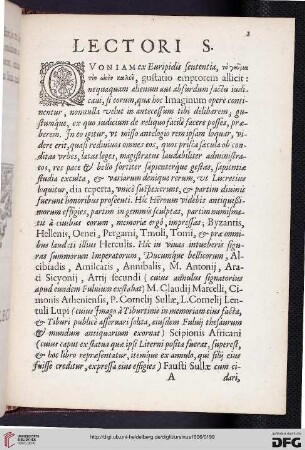 3
LECTORI S.
QVONIAM ex Euripidis sententia, τὸ γεῦμα
τὴν ὠνὴν καλεῖ, gustatio emptorem allicit:
nequaquam alienum aut absurdum factu iudi-
caui, si eorum, quæ hoc Imaginum opere conti-
nentur, nonnulla velut in antecessum tibi delibarem, gu-
stumque, ex quo iudicium de reliquo facilè facere posses, præ-
berem. In eo igitur, vt misso antelogio rem ipsam loquar, vi-
dere erit, quasi rediuiuos homines eos, quos prisca sæcula ob con-
ditas vrbes, latas leges, magistratus laudabiliter administra-
tos, res pace & bello fortiter sapienterque gestas, sapientiæ
studia exculta, & variarum denique rerum, vt Lucretius
loquitur, dia reperta, vnicè suspexerunt, & partim diuinis
fuerunt honoribus prosecuti. Hic Heroum videbis antiquissi-
morum effigies, partim in gemmis sculptas, partim numisma-
tis à ciuibus eorum, memoriæ ergò, impressas; Byzantis,
Hellenis, Oenei, Pergami, Tmoli, Tomi, & præ omni-
bus laudati illius Herculis. Hic in vnius intueberis figu-
ras summorum Imperatorum, Ducumque bellicorum, Al-
cibiadis, Amilcaris, Annibalis, M. Antonij, Ara-
ti Sicyonij, Arrij secundi (cuius adnulus signatorius
apud eundem Fuluium exstabat) M. Claudij Marcelli, Ci-
monis Atheniensis, P. Cornelij Sullæ, L. Cornelij Len-
tuli Lupi (cuius Imago à Tiburtinis in memoriam eius facta,
& Tiburi publicè asseruari solita, eiusdem Fuluij thesaurum
& mundum antiquarium exornat) Scipionis Africani
(cuius caput ex statua quæ ipsi Literni posita fuerat, superest,
& hoc libro repræsentatur, itemque ex annulo, qui filij eius
fuisse creditur, expressa eius effigies) Fausti Sullæ cum ci-
A
dari,
http://digi.ub.uni-heidelberg.de/diglit/ursinus1606/0199
UNIVERSITÄTS-
BIBLIOTHEK
HEIDELBERG
Gefördert durch die
DFG